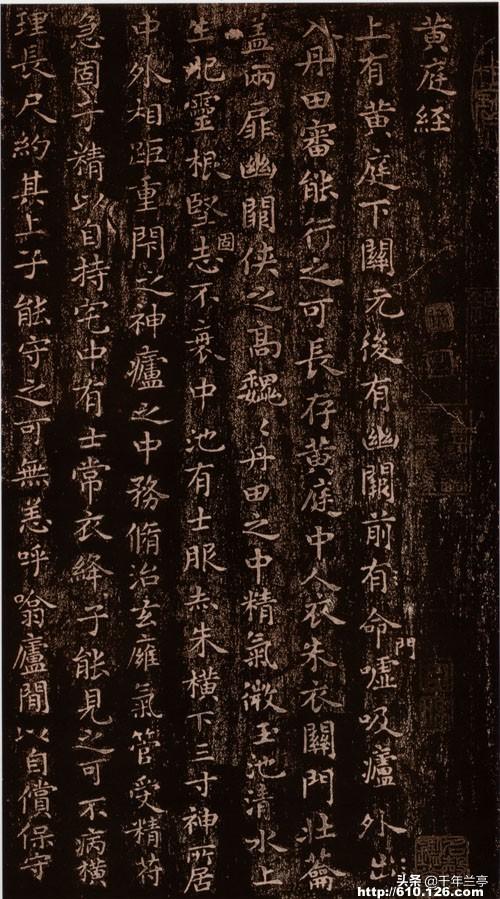 黄庭經
上有黄庭下關元後有幽闕前有命門嘘吸廬外出
入丹田審能行之可長存黄庭中人衣朱衣關門壯籥
盖兩扉幽闕俠之高巍〻丹田之中精氣微玉池清水上
生肥靈根堅固志不衰中池有士服赤朱横下三寸神所居
中外相距重閇之神廬之中務脩治玄廱氣管受精苻
急固子精以自持宅中有士常衣絳子能見之可不病横
理長尺約其上子能守之可無恙呼噏廬閒以自償保守
头条 @千年兰亭
http://610.126.com/